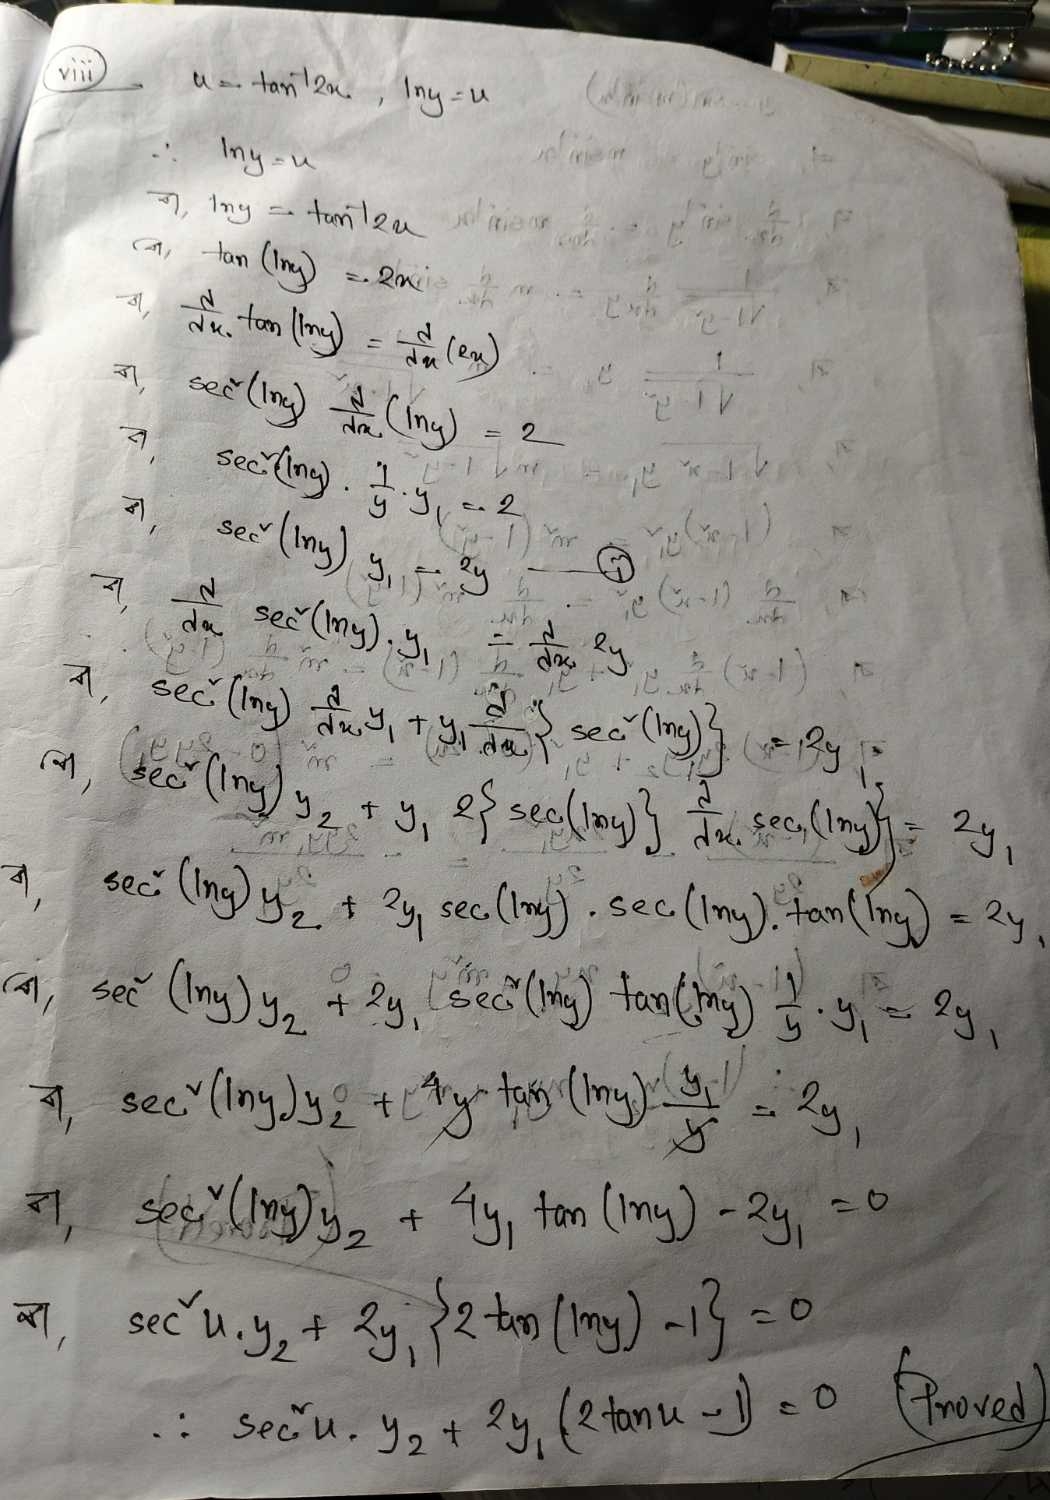 viii u = tan⁻¹2x, lny = u
∴ lny = u
বা, lny = tan⁻¹2x
বা, tan (lny) = 2x
বা, d/dx tan (lny) = d/dx (2x)
বা, sec² (lny) d/dx (lny) = 2
বা, sec² (lny) . 1/y . y₁ = 2
বা, sec² (lny) y₁ = 2y
বা, d/dx sec² (lny) . y₁ = d/dx 2y
বা, sec² (lny) d/dx y₁ + y₁ d/dx { sec² (lny) } = 2y₁
বা, sec² (lny) y₂ + y₁ 2 { sec (lny) } d/dx sec (lny) } = 2y₁
বা, sec² (lny) y₂ + 2y₁ sec (lny) . sec (lny) . tan (lny) = 2y₁
বা, sec² (lny) y₂ + 2y₁ sec² (lny) tan (lny) 1/y . y₁ = 2y₁
বা, sec² (lny) y₂ + 4y tan (lny) y₁/y = 2y₁
বা, sec² (lny) y₂ + 4y₁ tan (lny) - 2y₁ = 0
বা, sec² u . y₂ + 2y₁ { 2 tan (lny) - 1 } = 0
∴ sec² u . y₂ + 2y₁ (2 tan u - 1) = 0 (Proved)